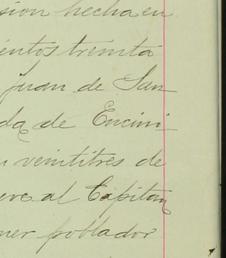 sion hecha en
ientos treinta
Juan de San
da de Encini
veintitres de
al Capitan
mer poblador